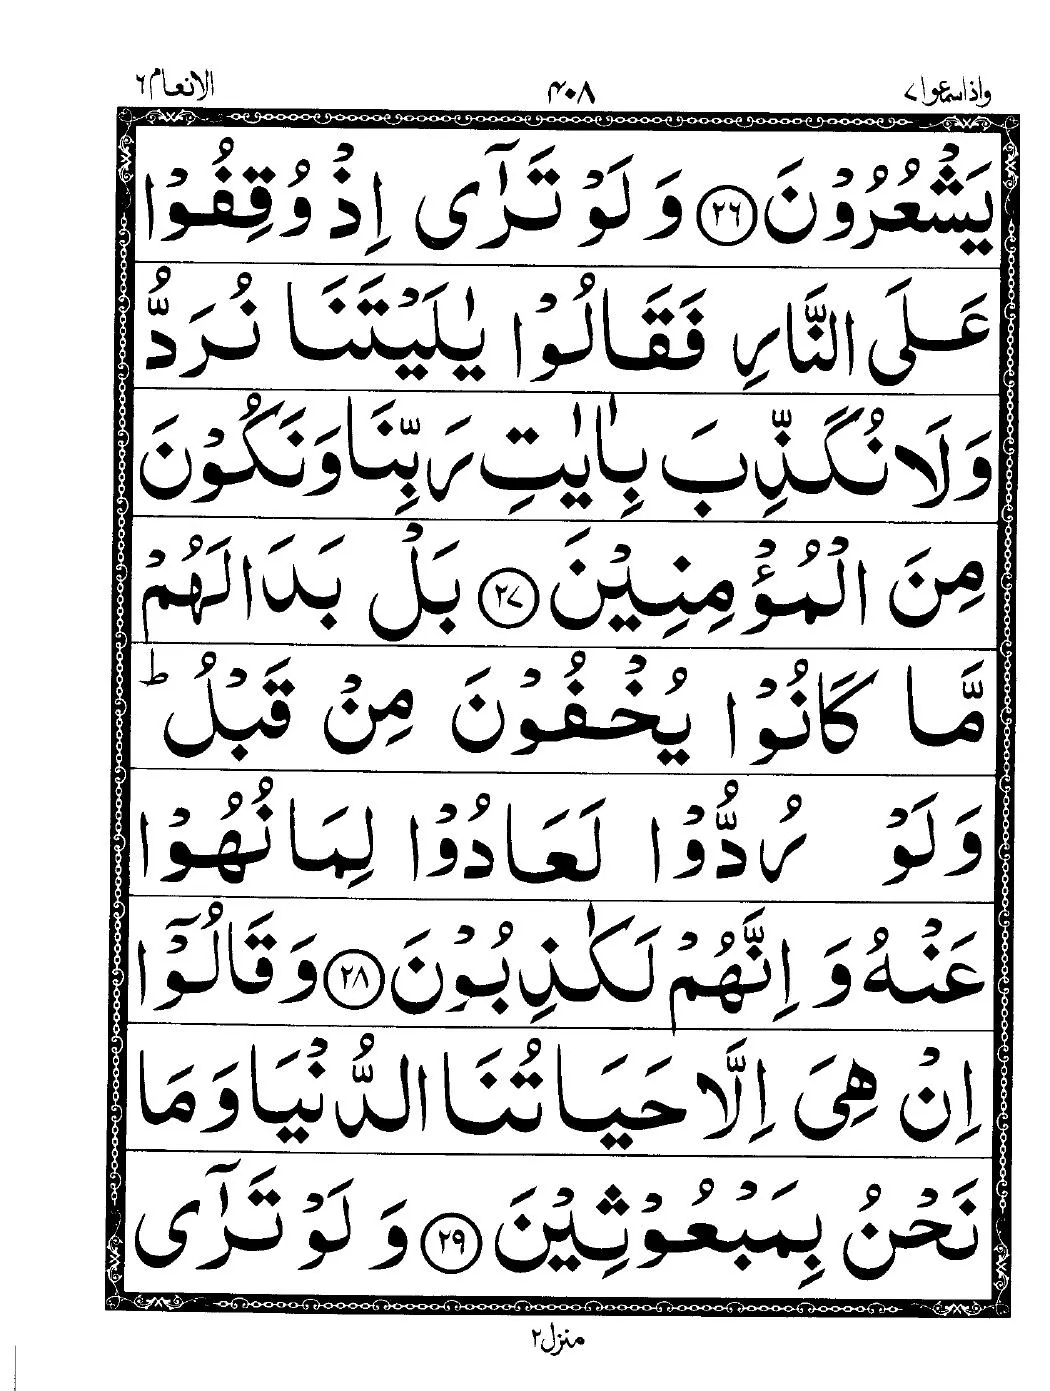 واذاسمعوا۷ ۴۰۸ الانعام۶
يَشْعُرُوْنَ ﴿۲۶﴾ وَ لَوْ تَرٰٓى اِذْ وُقِفُوْا
عَلَى النَّارِ فَقَالُوْا يٰلَيْتَنَا نُرَدُّ
وَلَا نُكَذِّبَ بِاٰيٰتِ رَبِّنَا وَنَكُوْنَ
مِنَ الْمُؤْمِنِيْنَ ﴿۲۷﴾ بَلْ بَدَالَهُمْ
مَّا كَانُوْا يُخْفُوْنَ مِنْ قَبْلُ ؕ
وَلَوْ رُدُّوْا لَعَادُوْا لِمَا نُهُوْا
عَنْهُ وَ اِنَّهُمْ لَكٰذِبُوْنَ ﴿۲۸﴾ وَ قَالُوْۤا
اِنْ هِىَ اِلَّا حَيَاتُنَا الدُّنْيَا وَمَا
نَحْنُ بِمَبْعُوْثِيْنَ ﴿۲۹﴾ وَ لَوْ تَرٰٓى
منزل۲